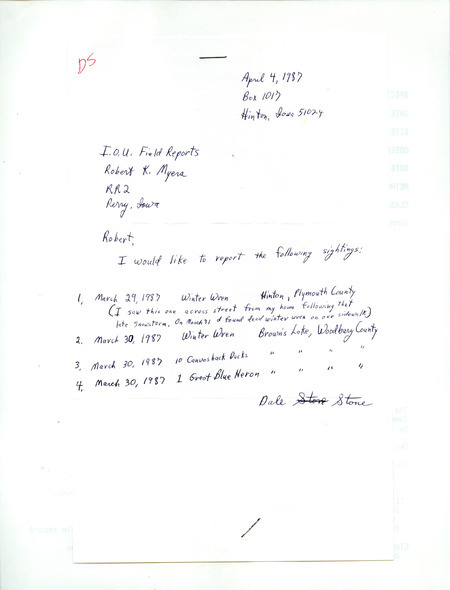 DS
April 4, 1987
Box 1017
Hinton, Iowa 51024
I.O.U. Field Reports
Robert K. Myers
RR2
Perry, Iowa
Robert,
I would like to report the following sightings:
1. March 29, 1987 Winter Wren Hinton, Plymouth County
(I saw this one across street from my home following that
late snowstorm. On March 31 I found dead winter wren on our sidewalk)
2. March 30, 1987 Winter Wren Brown's Lake, Woodbury County
3. March 30, 1987 10 Canvasback Ducks " " " "
4. March 30, 1987 1 Great Blue Heron " " " "
Dale Stone